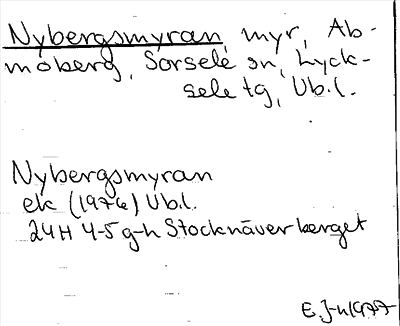 Nybergsmyran, myr, Ab-
moberg, Sorsele sn, Lyck-
sele tg, Vb.l.
Nybergsmyran
ek (1976) Vb.l.
24H 4-5 g-h Stocknäverberget
E. J-n 1977